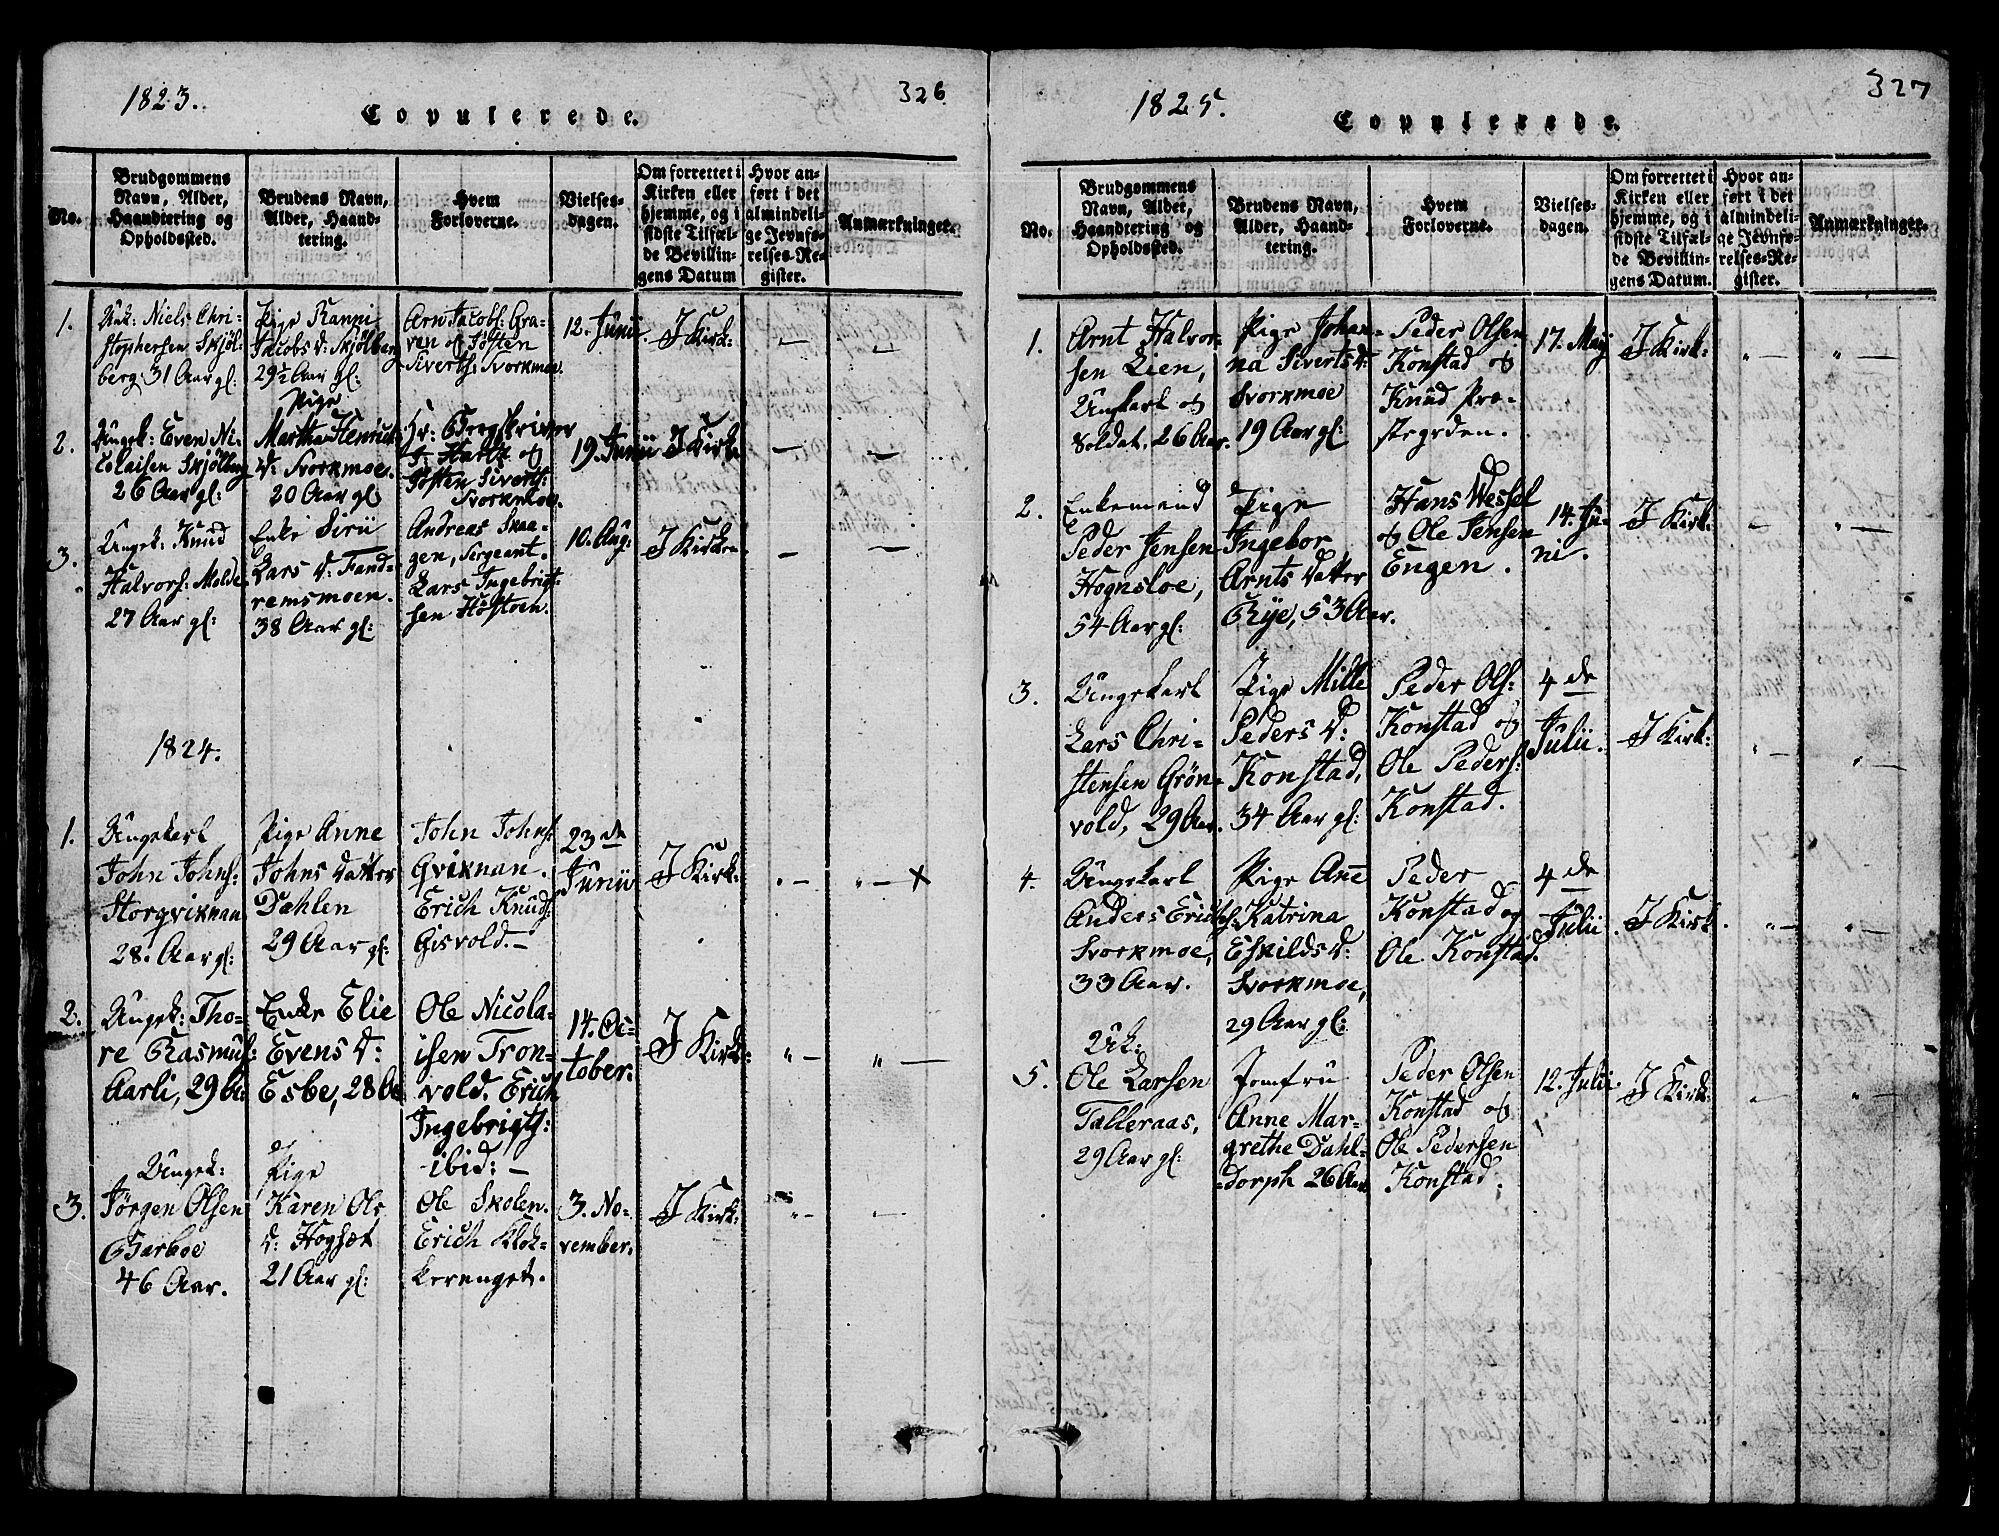 1823.
Copulerede.
326
No.
Brudgommens
Navn, Alder,
Haandtering og
Opholdssted.
Brudens Navn,
Alder, Haand-
tering.
Hvem
Forloverne.
Vielses-
dagen.
Om forrettet i
Kirken eller
hjemme, og i
sidste Tilfæl-
de Bevillin-
gens Datum
Hvor an-
ført i det
almindeli-
ge Jevnfø-
relses-Re-
gister.
Anmærkninger.
1.
Niels Chri-
stophersen Skjøl-
berg 31 Aar gl:
Pige
Jacobs D: Skjølberg
29½ Aar gl:
Arn Jacobs: Gra-
ven og Gøsten
Siverts: Svorkmoe
12. Junii
I Kirk:
2.
Ungek: Even Ni-
colaisen Skjølberg
26 Aar gl:
Pige
Martha Henrich
D: Svorkmoe.
20 Aar gl:
Hr: Bergskriver
og
Gøsten Siverts:
Svorkmoe.
19. Junii
I Kirk:
3.
Ungek: Knud
Halvors: Molde
27 Aar gl:
Enke Siru
Lars D: Fand-
remsmoen.
38 Aar gl:
Andreas Skaa-
gen, Sergeant.
Lars Ingebrigt-
sen Høstoen.
10. Aug:
I Kirken
1824.
1.
Ungekarl
John Johns:
Storqviknan
28. Aar gl:
Pige Anne
Johns Datter
Dahlen
29 Aar gl:
John Johns:
Qviknan.
Erich Knuds:
Gisvold.
23de
Junii
I Kirk:
x
2.
Ungek: Tho-
re Rasmus:
Aarli, 29 Aa:
Enke Elie
Evens D:
Esbe, 28 Aa
Ole Nicola-
isen Tron-
vold. Erich
Ingebrigts:
ibid:
14. Oc-
tober.
I Kirk:
3.
Ungek:
Jørgen Olsen
Garboe
46 Aar.
Pige
Karen Ols
D: Hogsæt
21 Aar gl:
Ole Skolen.
Erich Klok-
kerenget.
3. No-
vember.
I Kirk:
1825.
Copulerede.
327
No.
Brudgommens
Navn, Alder,
Haandtering og
Opholdssted.
Brudens Navn,
Alder, Haand-
tering.
Hvem
Forloverne.
Vielses-
dagen.
Om forrettet i
Kirken eller
hjemme, og i
sidste Tilfæl-
de Bevillin-
gens Datum.
Hvor an-
ført i det
almindeli-
ge Jevnfø-
relses-Re-
gister.
Anmærkninger.
1.
Arnt Halvor-
sen Lien,
Ungkarl og
Soldat, 26 Aar.
Pige Johan-
na Siverts D:
Svorkmoe
19 Aar gl:
Peder Olsen
Konstad og
Knud Præ-
stegrden.
17. May
I Kirk:
2.
Enkemand
Peder Jensen
Hognsloe,
54 Aar gl:
Pige
Ingebor
Arnts Datter
Rye, 53 Aar.
Hans Wessel
og Ole Jensen
Engen.
14. Ju-
ni.
I Kirk:
3.
Ungekarl
Lars Chri-
stensen Grøn-
vold, 29 Aar.
Pige Mille
Peders D:
Konstad,
34 Aar gl:
Peder Ols:
Konstad og
Ole Peders:
Konstad.
4de
Julii.
I Kirk:
4.
Ungekarl
Anders Erichs:
Svorkmoe,
33 Aar.
Pige Ane
Katrina
Eskilds D:
Svorkmoe,
29 Aar gl:
Peder
Konstad og
Ole Konstad.
4de
Julii.
I Kirk.
5.
Uk:
Ole Larsen
Talleraas,
29 Aar gl:
Jomfru
Anne Mar-
grethe Dahl-
dorph 26 Aar
Peder Olsen
Konstad og
Ole Pedersen
Konstad.
12. Julii.
I Kirk: